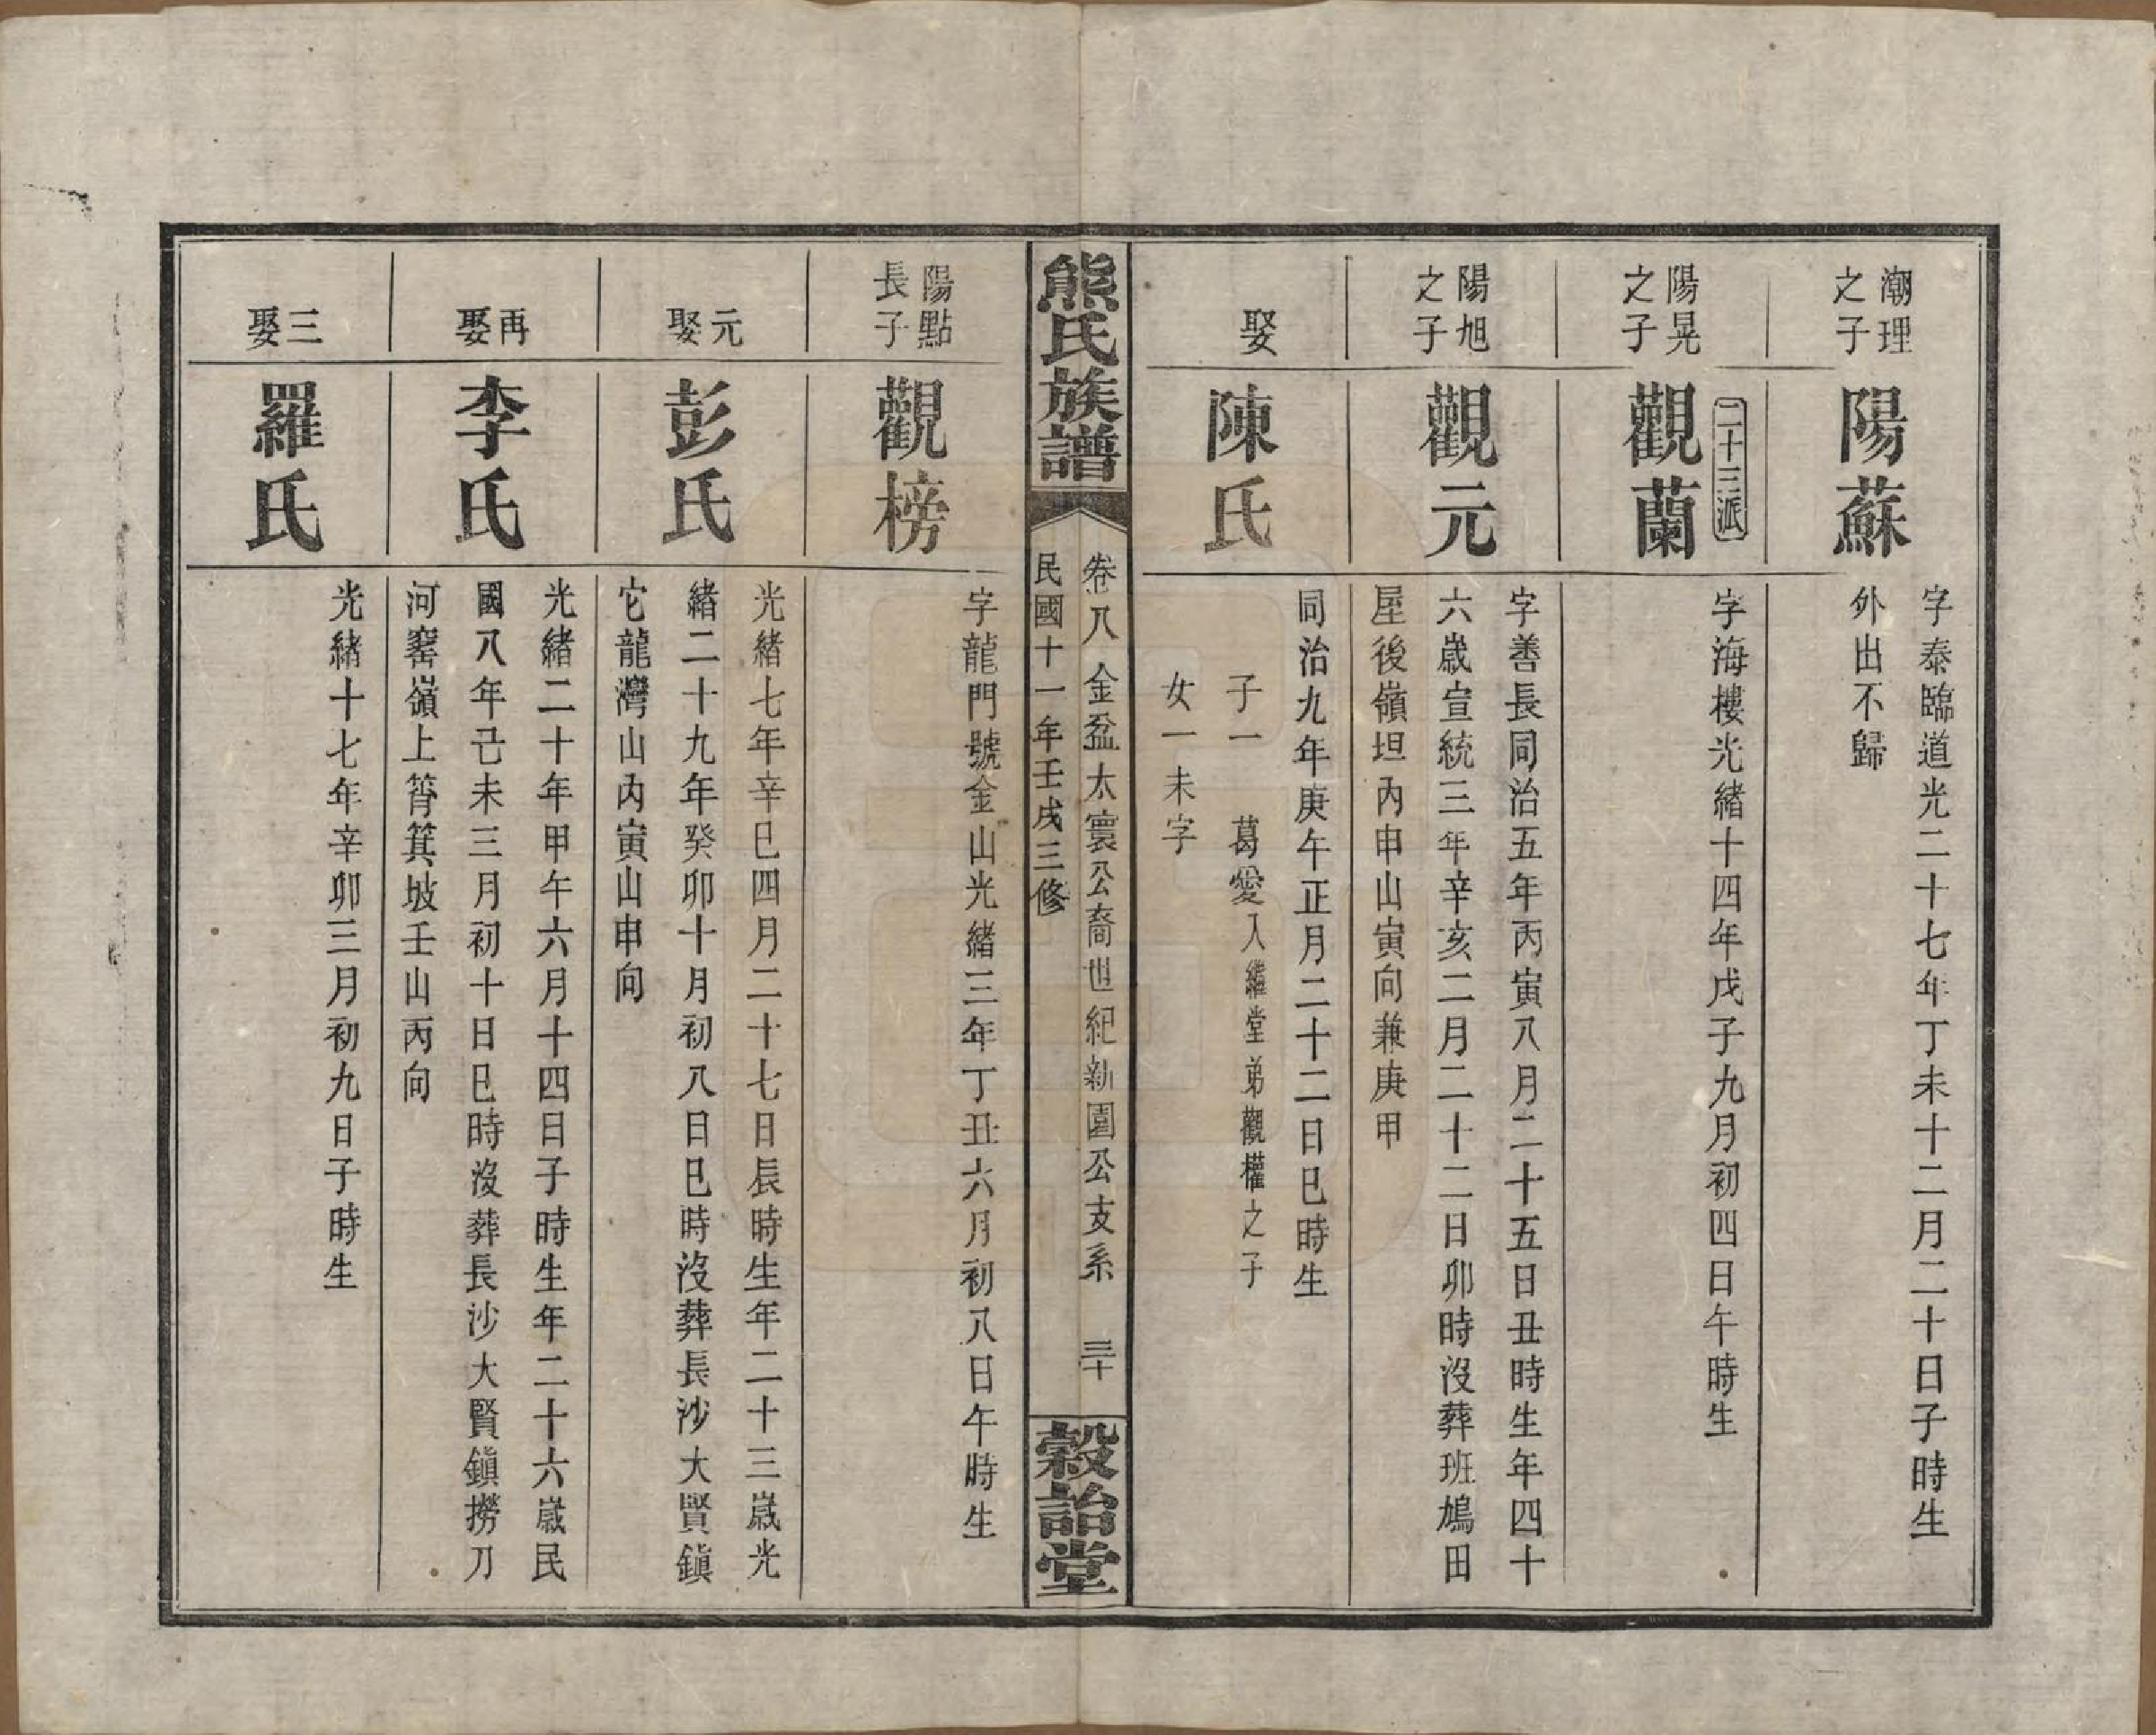 潮理
之子
陽蘇
字泰臨道光二十七年丁未十二月二十日子時生
外出不歸
陽晃
之子
二十三派
觀蘭
字海樓光緒十四年戊子九月初四日午時生
陽旭
之子
觀元
字善長同治五年丙寅八月二十五日丑時生年四十
六歲宣統三年辛亥二月二十二日卯時沒葬班鳩田
屋後嶺坦內申山寅向兼庚甲
娶
陳氏
同治九年庚午正月二十二日巳時生
子一 葛愛入繼堂弟觀權之子
女一未字
熊氏族譜
卷八 金盆太寰公裔世紀新園公支系 三十
民國十一年壬戌三修
穀詒堂
陽點
長子
觀榜
字龍門號金山光緒三年丁丑六月初八日午時生
元
娶
彭氏
光緒七年辛巳四月二十七日辰時生年二十三歲光
緒二十九年癸卯十月初八日巳時沒葬長沙大賢鎭
它龍灣山內寅山申向
再
娶
李氏
光緒二十年甲午六月十四日子時生年二十六歲民
國八年己未三月初十日巳時沒葬長沙大賢鎭撈刀
河窰嶺上筲箕坡壬山丙向
三
娶
羅氏
光緒十七年辛卯三月初九日子時生